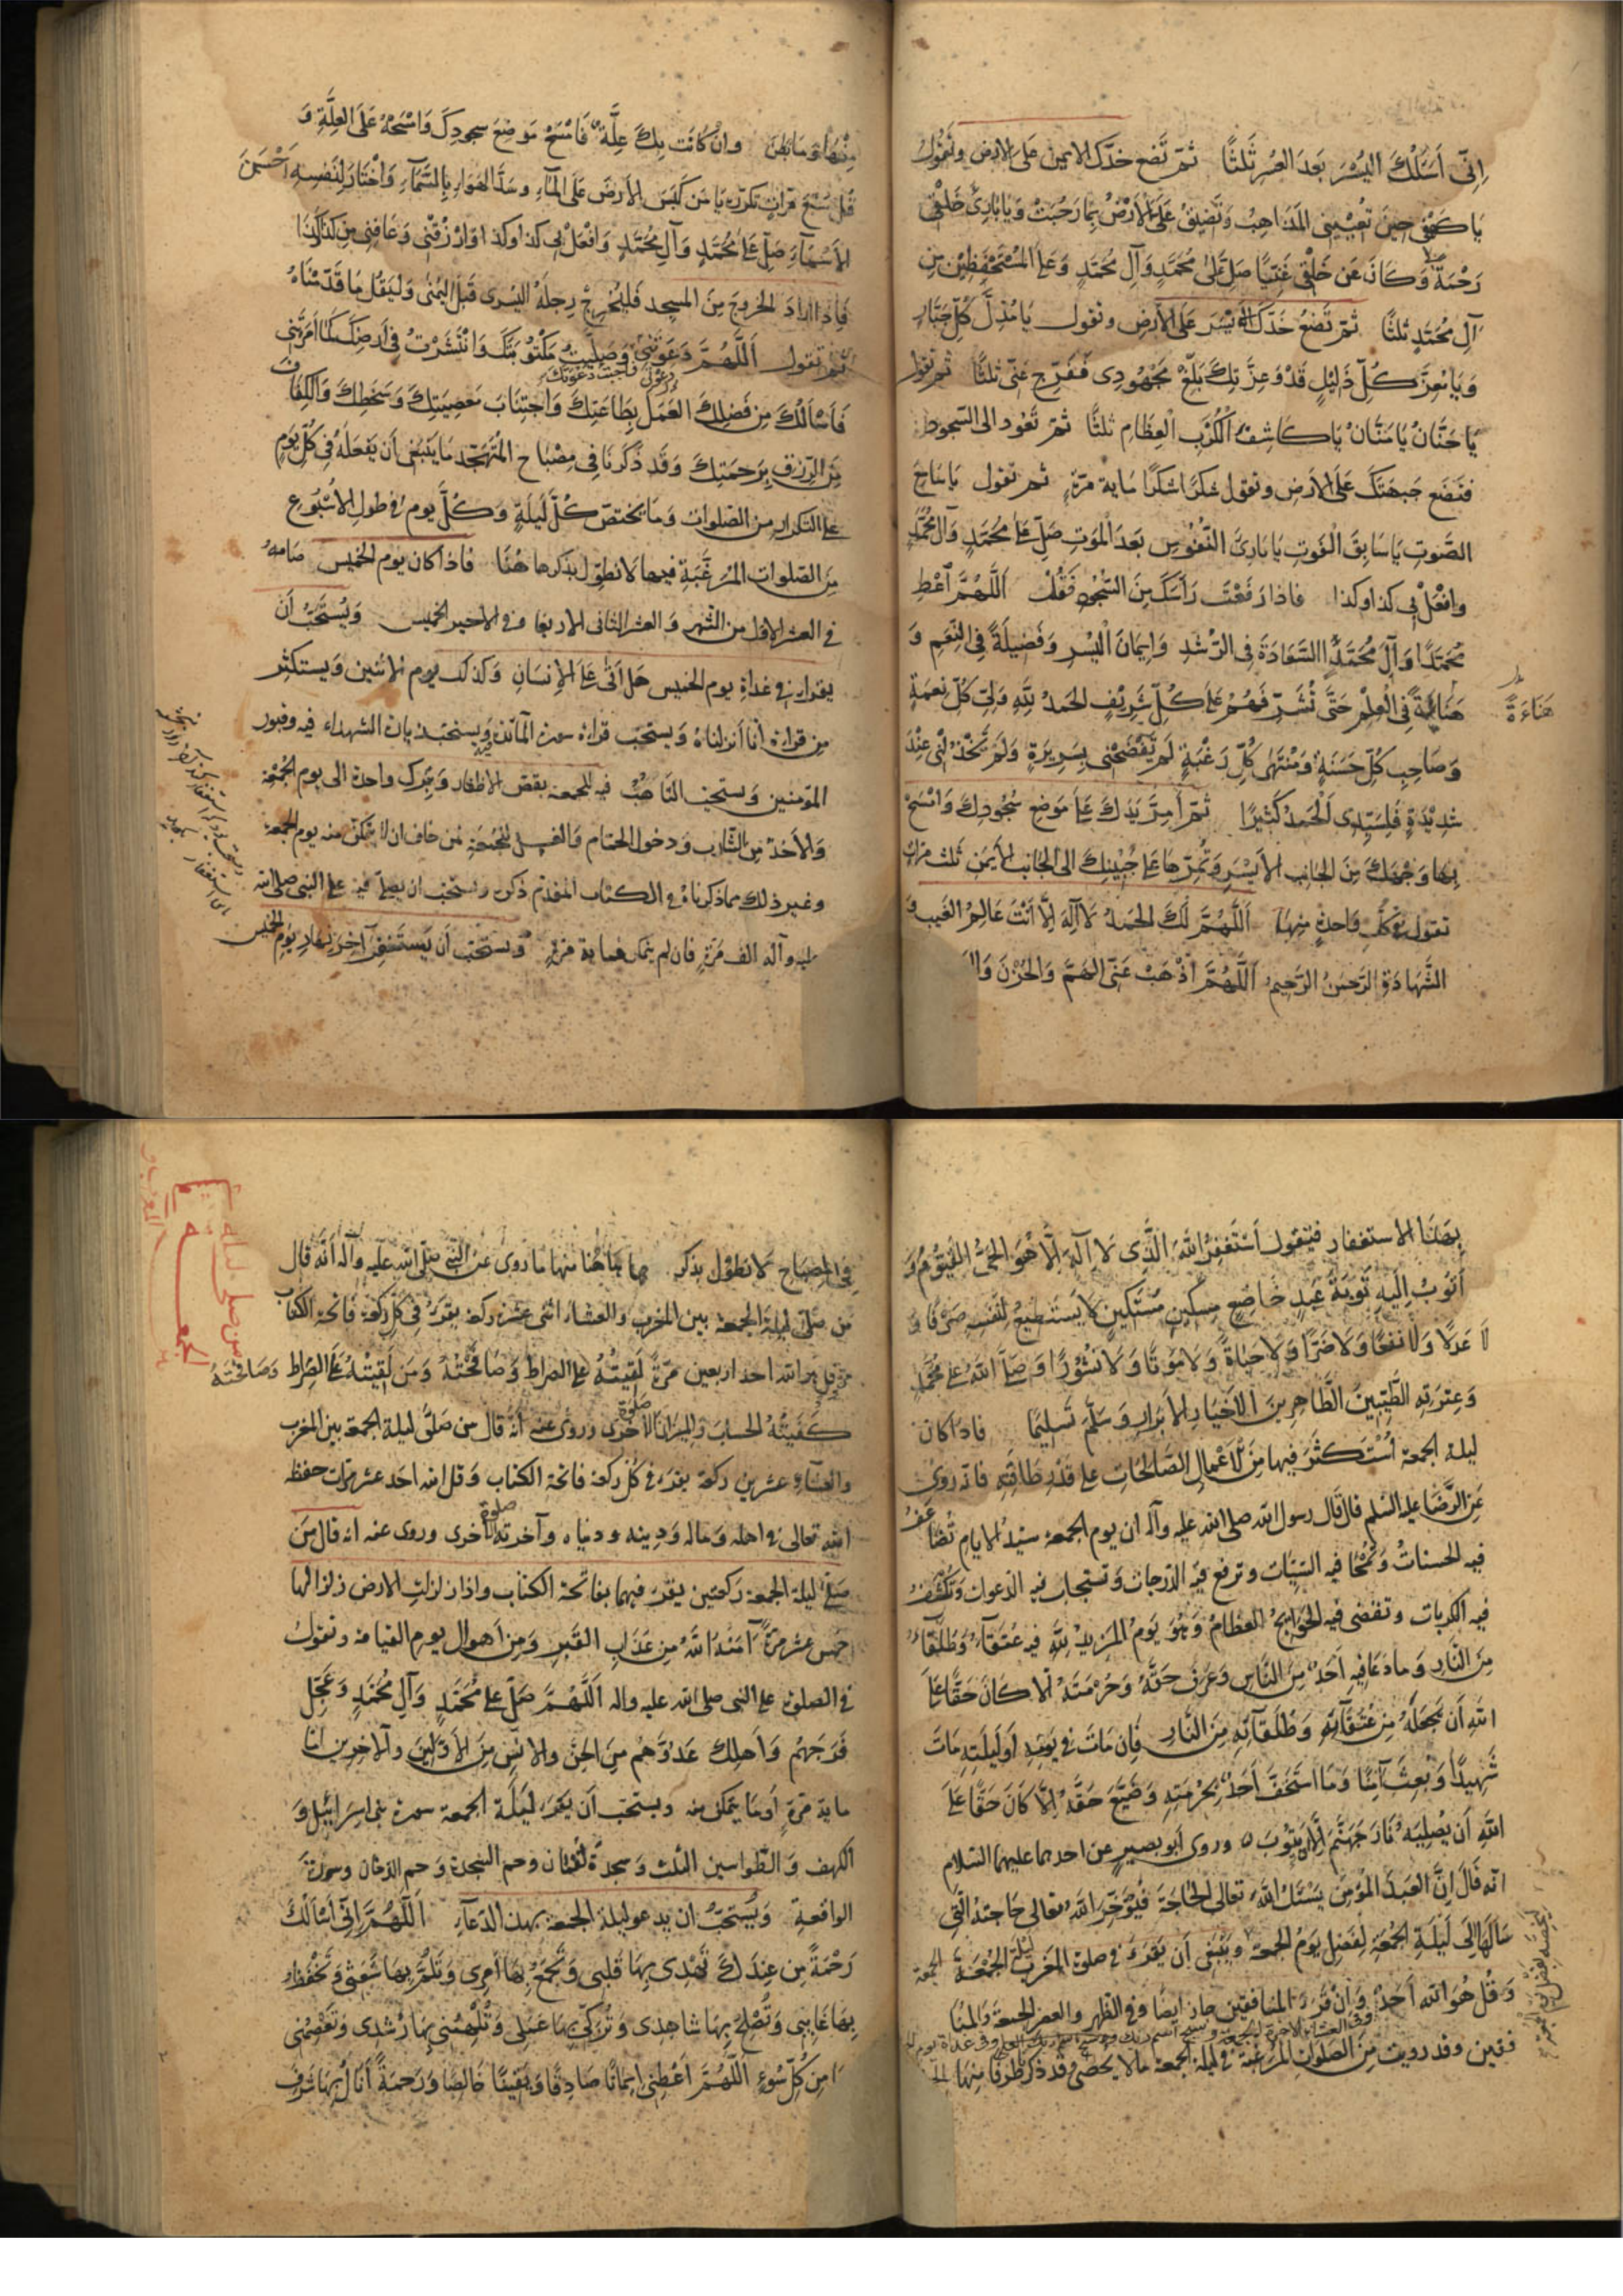 اِنّى اَسْئَلُكَ اليُسْرَ بَعدَ العُسْرِ ثَلثًا ثمّ تَضع خدّك الايمن على الارض وتَقُولُ
يَا كَهْفى حِينَ تُعْيينِى المَذاهِبُ وَتَضيقُ عَلَىَّ الاَرْضُ بِمَا رَحُبَتْ وَيَا بَارِئَ خَلْقى
رَحْمَةً وَكَانَ عَن خَلْقى غَنِيًّا صَلِّ عَلَى مُحَمَّدٍ وَآلِ مُحَمَّدٍ وَعَلَى المُسْتَحْفَظِينَ مِن
آلِ مُحَمَّدٍ ثلثًا ثمّ تَضَعُ خَدّكَ الاَيْسَر عَلَى الاَرضِ وتقول يَا مُذِلَّ كُلِّ جَبّارٍ
وَيَا مُعِزَّ كُلِّ ذَليلٍ قَدْ وَعِزَّتِكَ بَلَغَ مَجْهُودِى فَفَرِّج عَنّى ثلثًا ثم تقول
يَا حَنَّانُ يَا مَنَّانُ يَا كَاشِفَ الكُرَبِ العِظَامِ ثلثًا ثمّ تَعُود الى السّجود
فتَضَع جَبهَتَكَ عَلَى الارضِ وتقول شكرًا شكرًا ماية مرّةٍ ثم تقول يا سَامِعَ
الصَّوتِ يَا سَابِقَ الفَوتِ يَا بَارِئَ النُّفُوسِ بَعدَ المَوتِ صَلِّ عَلى مُحَمَّدٍ وَآلِ مُحَمَّدٍ
وافْعَلْ بى كذا وكذا فاذا رَفَعْتَ رَأسَكَ مِنَ السُّجُودِ فَقُلْ اَللّهُمَّ اَعْطِ
مُحَمَّدًا وَآلَ مُحَمَّدٍ السَّعَادَةَ فى الرُّشدِ وَايمَانَ اليُسْرِ وَفَضيلَةً فى النِعَمِ وَ
هَنَاءَةً فى العِلْمِ حَتّى تُشَرِّفَهُمْ عَلى كُلِّ شَريفٍ الحَمدُ للهِ وَلِىّ كُلِّ نِعمَةٍ
هَنَاءَةً
وَصَاحِبِ كُلِّ حَسَنَةٍ وَمُنْتَهى كُلِّ رَغْبَةٍ لَم يَفْضَحْنى بِسَريرَةٍ وَلَم يَخْذُلْنى عِنْدَ
شَديْدَةٍ فَلِسَيِّدِى الحَمدُ كَثيرًا ثمّ اَمِرَّ يَدَكَ عَلى مَوضِعِ سُجُودِكَ وَامْسَحْ
بِهَا وَجْهَكَ مِنَ الجَانِبِ الاَيْسَرِ وَتُمِرّهَا عَلى جَبينِكَ الى الجَانِبِ الاَيمَنِ ثلث مرّاتٍ
تقول فى كلّ وَاحِدَةٍ منها اَللّهُمَّ لَكَ الحَمدُ لا اِلهَ اِلّا اَنْتَ عَالِمُ الغَيبِ و
الشَّهَادَةِ الرَّحمنُ الرَّحيمُ اَللّهُمَّ اَذْهِبْ عَنّى الهَمَّ وَالحُزْنَ وَ
مِنْهَا وَمَا بَطَنَ وان كَانَت بِكَ عِلَّةٌ فَامْسَحْ مَوضِعَ سجودِكَ وَامْسَحْهُ عَلَى العِلَّةِ وَ
قُل سَبْعَ مَرّاتٍ يَا مَن كَبَسَ الاَرضَ عَلَى المَآءِ وسَدَّ الهَوَاءَ بِالسَّمَآءِ وَاخْتَارَ لِنَفْسِهِ اَحْسَنَ
الاَسْمَآءِ صَلِّ عَلى مُحَمَّدٍ وَآلِ مُحَمَّدٍ وَافْعَلْ بى كذا وكذا وَارْزُقْنى وَعَافِنى مِن كذا وكذا
فَاِذا اَرَادَ الخروجَ مِنَ المسجِد فَليُخرِجْ رِجلَهُ اليسرى قَبلَ اليُمنى وَليَقُل مَا قَدَّمْنَاهُ
ثم تقول اَللّهُمَّ دَعَوْتَنى وَصَلَّيْتُ مَكْتُوبَتَكَ وَانْتَشَرْتُ فى اَرضِكَ كَمَا اَمَرْتَنى
فاجبت دعوتك
فَاَسْاَلُكَ مِن فَضْلِكَ العَمَلَ بِطَاعَتِكَ وَاجتِنَابَ مَعصِيَتِكَ وَسَخَطِكَ وَالكَفَاف
مِنَ الرّزق بِرَحمَتِكَ وَقَد ذَكَرنَا فى مِصْبَاحِ المُتَهَجّد مَا يَنبَغى اَن يَفعَلَهُ فى كلّ يَومٍ
على التكرار من الصّلوات وَمَا يَختصّ كُلّ لَيلَةٍ وَكُلَّ يومٍ فى طولِ الاُسْبُوعِ
مِنَ الصّلوات المُرَغَّبَةِ فيها لَا نطوّل بذكرها هٰهُنَا فاذا كان يوم الخميس صَامَهُ
فى العشر الاوّل من الشّهر وَالعشر الثانى الاربعا وفى الاخير الخميس وَيُسْتَحَبُّ اَن
يقرا فى غداةِ يوم الخميس هَل اَتى عَلَى الاِنسَانِ وكذلك يوم الاثنين وَيستكثر
من قراءة انا اَنزلناهُ وَيستحَبّ قراءة سورة المآئدة وَيستحَبّ زيارة الشهداء فيه وقبور
المؤمنين وَيستحبّ التّاهّب فيه للجمعة بقصّ الاظفار وَيترك واحدة الى يوم الجُمُعَة
وَالاَخذ مِن الشّارب وَدخول الحمّام وَالغسل للجُمُعَةِ لمن خاف ان لا يتمكّن منه يوم الجمعة
وغير ذلك مما ذكرناه فى الكتاب المقدّم ذكره ويستحبّ ان يصلّى فيه على النبى صلى الله
عليه وآله الف مَرّةٍ فان لم يتمكن فماية مرّةٍ ويستحبّ اَن يَستَغفِرَ آخِرَ نهارِ يَومِ الخميس
بِهذَا الاستغفارِ فيَقول اَسْتَغفِرُ اللهَ الَّذِى لَا اِلٰهَ اِلّا هُوَ الحَىُّ القَيُّومُ وَ
اَتُوبُ اِلَيهِ تَوبَةَ عَبدٍ خَاضِعٍ مِسكينٍ مُسْتَكينٍ لا يَستَطيعُ لِنَفْسِهِ صَرْفًا وَ
لَا عَدلًا وَلا نَفعًا وَلا ضَرًّا وَلا حَيوةً وَلا مَوتًا وَلا نُشُورًا وَصَلَّى اللهُ عَلى مُحَمَّدٍ
وَعِترَتِهِ الطَّيّبينَ الطَّاهِرينَ الاَخيَارِ الاَبرَارِ وَسَلَّمَ تَسليمًا فاذا كان
ليلة الجمعة اُسْتُكثِرَ فيها مِنَ الاَعْمَالِ الصَّالِحَاتِ عَلى قَدْرِ طَاقَتِهِ فانّه روى
عَنِ الرِّضَا عليه السّلم قال قال رسول الله صلى الله عليه وآله ان يوم الجمعة سيّد الايام تُضَاعَفُ
فيه الحسناتُ وَتُمْحَا فيه السّيّات وترفع فيه الدّرجات وَتستجاب فيه الدّعوات وَتُكْشَفُ
فيه الكربات وتقضى فيه الحَوَائِجُ العِظَامُ وَهُوَ يَومُ المَزيدِ للهِ فيه عُتَقَآءُ وَطُلَقَآءُ
مِنَ النَّارِ وَمَا دَعَا فيهِ اَحَدٌ مِنَ النَّاسِ وَعَرَفَ حَقَّهُ وَحُرْمَتَهُ اِلّا كَانَ حَقًّا عَلَى
اللهِ اَن يَجعَلَهُ مِن عُتَقَآئِهِ وَطُلَقَآئِهِ مِنَ النَّارِ فَاِن مَاتَ فى يَومِهِ اَو لَيلَتِهِ مَاتَ
شَهيدًا وَبُعِثَ آمِنًا وَمَا استَخَفَّ اَحَدٌ بِحُرْمَتِهِ وَضَيَّعَ حَقَّهُ اِلّا كَانَ حَقًّا عَلَى
اللهِ اَن يُصْلِيَهُ نَارَ جَهَنَّمَ اِلّا اَن يَتُوبَ وروى اَبو بصيرٍ عن احدهما عليهما السّلام
انّه قالَ اِنَّ العَبدَ المُؤمِنَ يَسْئَلُ اللهَ تعالى الحَاجَةَ فَيُؤَخِّرُ اللهُ تعالى حَاجَتَهُ الّتى
سَاَلَهَا اِلَى لَيلَةِ الجُمُعَةِ لِفَضْلِ يَومِ الجُمعة وَيَنبَغى اَن يَقرَءَ فى صلوة المَغرِب لَيلَةَ الجُمُعَةِ الجمعة
وَقُل هُوَ الله اَحَدٌ وَاِنْ قَرَءَ المنافقين جاز ايضًا وفى الظهر والعصر الجمعة والمنا
فقين وقد رويت مِنَ الصّلوات المُرَغّبَة فى ليلة الجمعة ما لا يحصى وقد ذكرنا طَرَفًا مِنهَا
فِى المِصْبَاحِ لَا نطوّل بذكرها هٰهُنَا منها ما روى عن النّبى صلّى الله عليه وآله انّه قال
مَن صَلّى ليلة الجمعة بين المغرب والعشاء اثنى عشرة ركعة يقرء فى كلّ ركعة فاتحة الكتاب
وقل هو الله احد اربعين مَرّةً لَقيتُهُ على الصراط وَصَافَحْتُهُ وَمَن لَقيتُهُ عَلَى الصِراط وَصَافَحْتُهُ
كَفَيتُهُ الحساب وَالميزان صلوة اخرى وروى عنه انّه قال من صَلّى ليلة الجمعة بين المغرب
والعشآءِ عشرين ركعة يقرء فى كلّ ركعة فاتحة الكتاب وَقل هو الله احد عشر مرّات حفظه
الله تعالى فى اهله وَماله وَدينه ودنياه وآخرته صلوة اخرى وروى عنه انه قال مَن
صَلّى ليلة الجمعة ركعتين يقرء فيهما بفاتحة الكتاب واذا زلزلت الارض زلزالها
خمس عشر مرّةً آمَنَهُ اللهُ مِن عَذَابِ القَبرِ وَمِن اَهوالِ يومِ القيامة وتقول
فى الصلوة على النّبى صلى الله عليه واله اَللّهُمَّ صَلِّ عَلى مُحَمَّدٍ وَآلِ مُحَمَّدٍ وَعَجِّل
فَرَجَهُم وَاَهلِك عَدُوَّهُم مِنَ الجِنِّ والانسِ مِنَ الاَوّلينَ والآخرين
ماية مرّةٍ اَو مَا يتمكّن منه ويستحبّ اَن يَقرَءَ لَيلَة الجمعة سورة بنى اسرائيل وَ
الكهف وَالطّواسين الثلث وَسجدة لقمان وحم السّجدة وَحم الدّخان وسورة
الواقعة وَيُستحَبّ ان يدعو ليلة الجمعة بهذا الدّعآءِ اَللّهُمَّ اِنّى اَسْاَلُكَ
رَحْمَةً مِن عِندِكَ تَهْدِى بِهَا قَلبى وَتَجمَعُ بِهَا اَمرِى وَتَلُمُّ بِهَا شَعَثى وَتَحْفَظُ
بِهَا غَايبى وَتُصْلِحُ بِهَا شاهِدى وَتُزَكّى بِهَا عَمَلى وَتُلْهِمُنى بِهَا رُشْدى وَتَعْصِمُنى
بها مِن كُلِّ سُوءٍ اَللّهُمَّ اَعْطِنى ايمَانًا صَادِقًا وَيَقينًا خَالِصًا وَرَحمَةً اَنَالُ بِهَا شَرَفَ